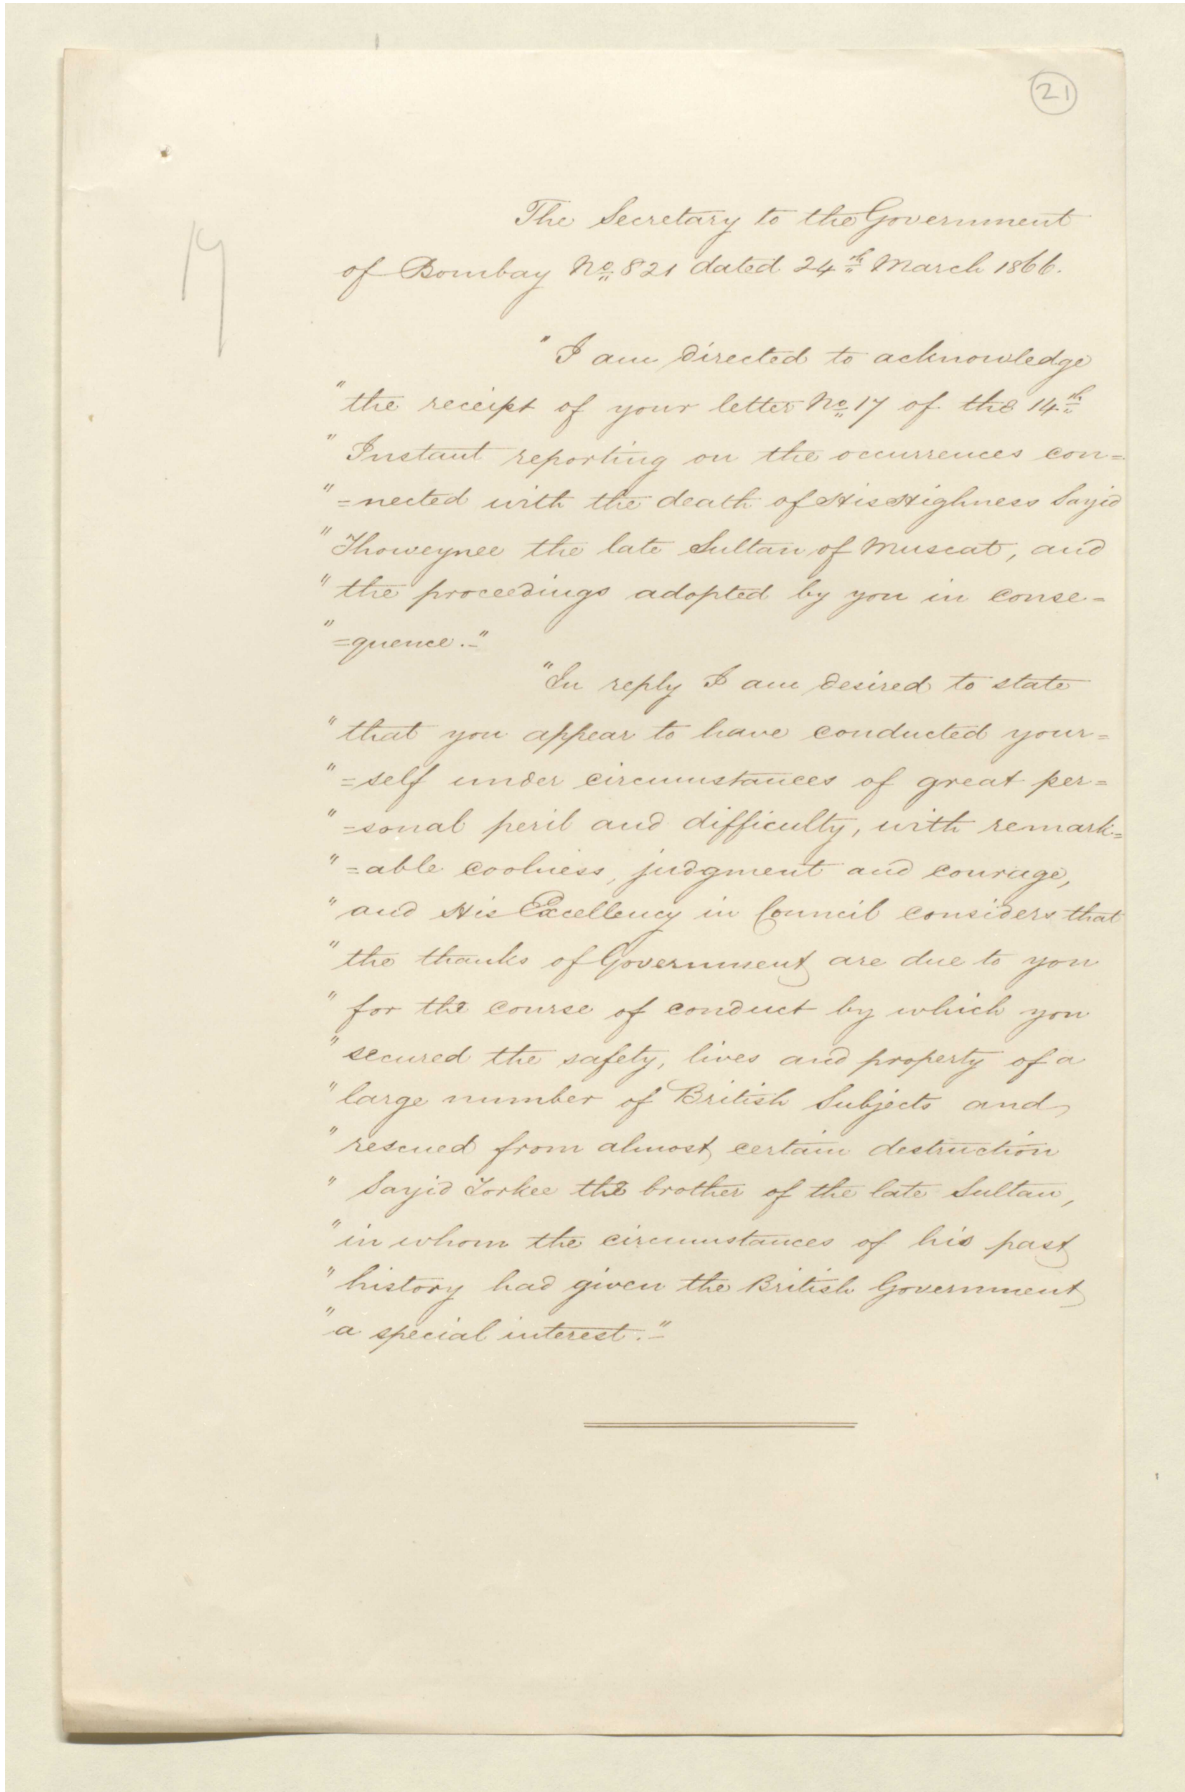 21
19
The Secretary to the Government
of Bombay No. 821 dated 24th March 1866.
"I am directed to acknowledge
"the receipt of your letter No. 17 of the 14th
"Instant reporting on the occurrences con=
"=nected with the death of His Highness Sayid
"Thoweynee the late Sultan of Muscat, and
"the proceedings adopted by you in conse=
"=quence."
"In reply I am desired to state
"that you appear to have conducted your=
"=self under circumstances of great per=
"=sonal peril and difficulty, with remark=
"=able coolness, judgment and courage,
"and His Excellency in Council considers that
"the thanks of Government are due to you
"for the course of conduct by which you
"secured the safety, lives and property of a
"large number of British Subjects and
"rescued from almost certain destruction
"Sayid Torkee the brother of the late Sultan,
"in whom the circumstances of his past
"history had given the British Government
"a special interest."